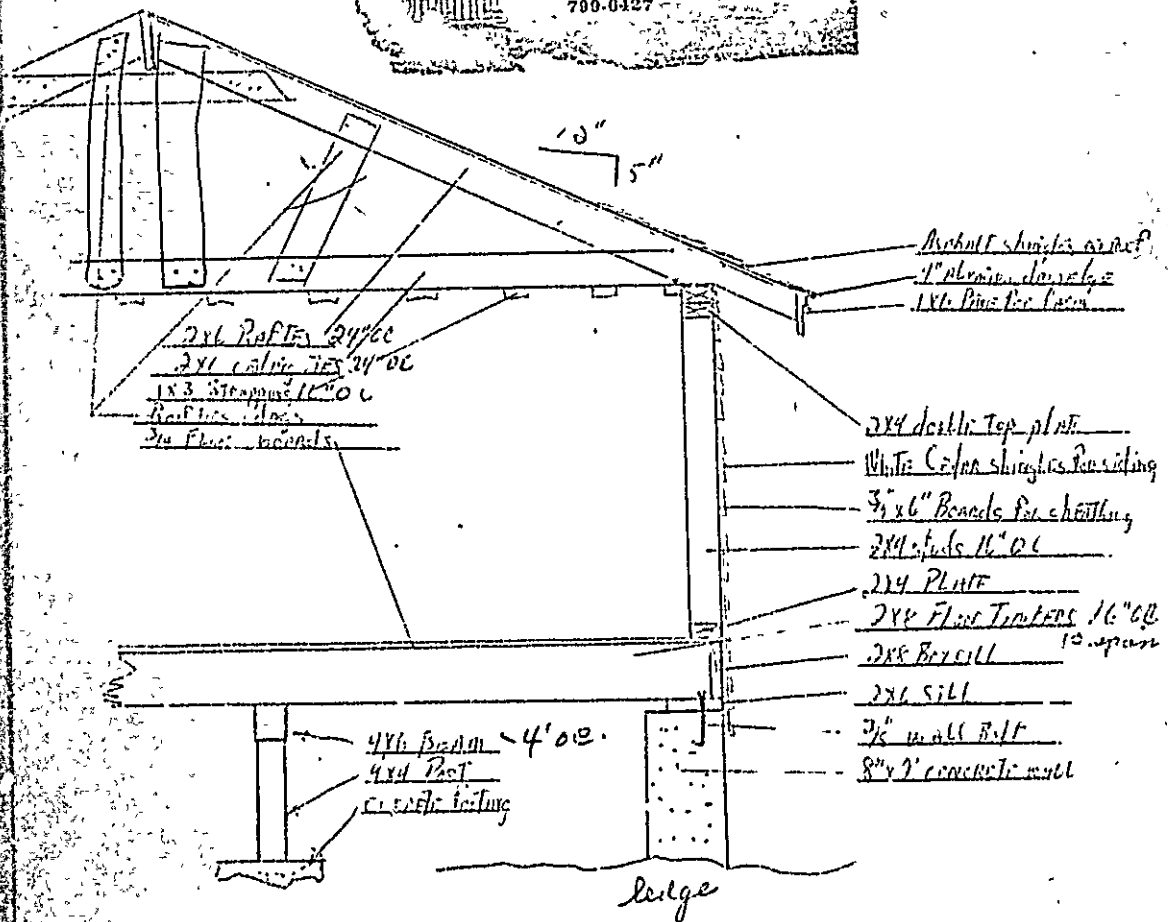 799-0427
12"
5"
Asphalt shingles on roof
1" drip edge
1x6 Pine for
2x6 Rafters 24" OC
2x6 ceiling TIES 24" OC
1x3 strapping 16" OC
Rafters
3/4 Floor boards
2x4 double Top plate
White Cedar shingles for siding
x6" Boards for sheathing
2x4 studs 16" OC
2x4 PLATE
2x8 Floor Timbers 16" OC
span
2x8 Boxsill
2x6 SILL
wall Bolt
8" x concrete wall
4x6 Beam ~ 4' OC.
4x4 Post
footing
ledge